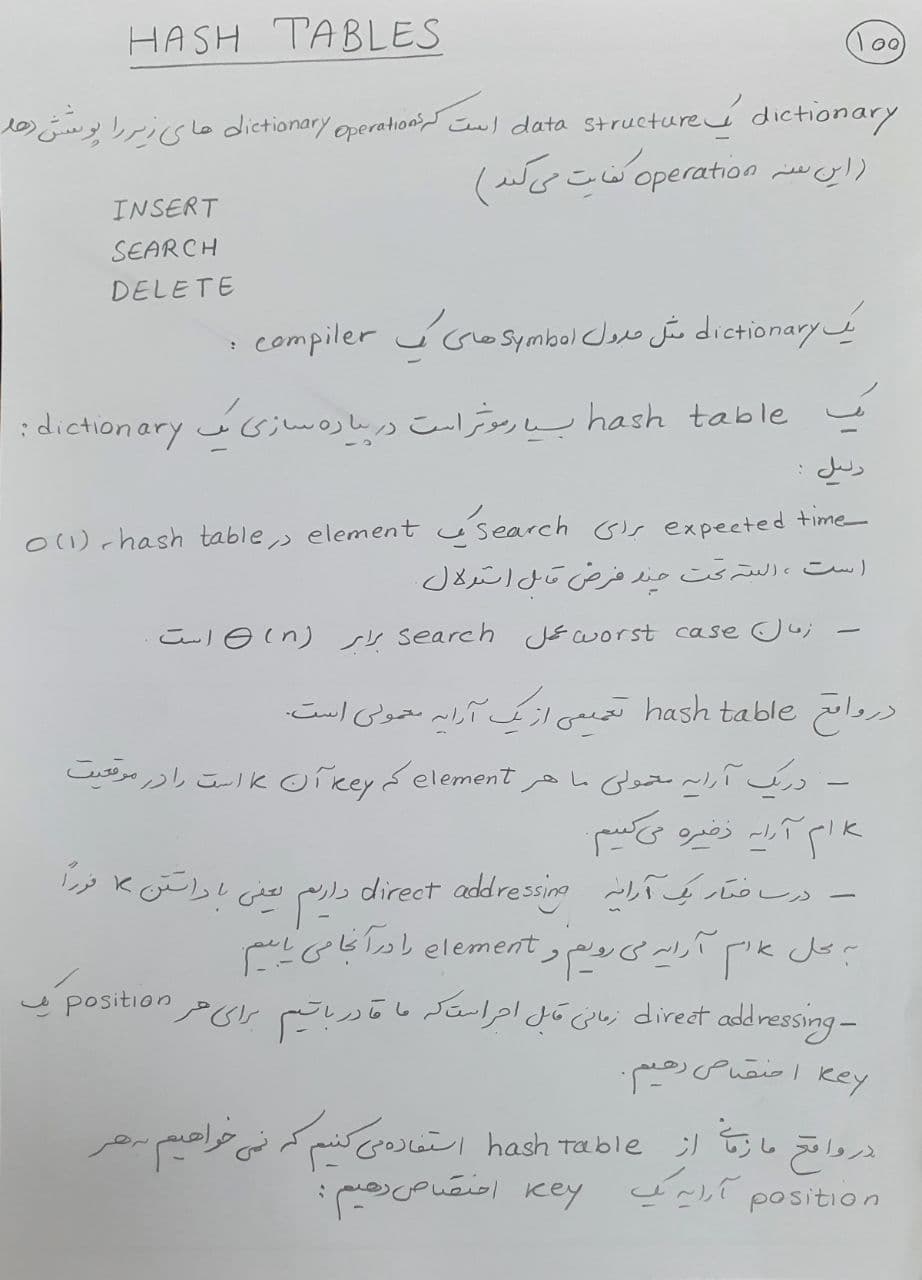 HASH TABLES
100
dictionary یک data structure است که dictionary operations های زیر را پوشش دهد
(این سه operation کفایت می‌کند)
INSERT
SEARCH
DELETE
یک dictionary مثل جدول symbol های یک compiler :
یک hash table بسیار موثر است در پیاده سازی یک dictionary :
دلیل :
– expected time برای search یک element در hash table ، O(1)
است ، البته تحت چند فرض قابل استدلال .
– زمان worst case عمل search برابر Θ(n) است .
در واقع hash table تعمیمی از یک آرایه معمولی است .
– در یک آرایه معمولی ما هر element که key آن k است را در موقعیت
k ام آرایه ذخیره می‌کنیم .
– در ساختار یک آرایه direct addressing داریم یعنی با داشتن k فوراً
به محل k ام آرایه می رویم و element را در آنجا می یابیم
– direct addressing زمانی قابل اجراست که ما قادر باشیم برای هر position یک
key اختصاص دهیم .
در واقع ما زمانی از hash table استفاده می کنیم که نمی خواهیم به هر
position آرایه یک key اختصاص دهیم :